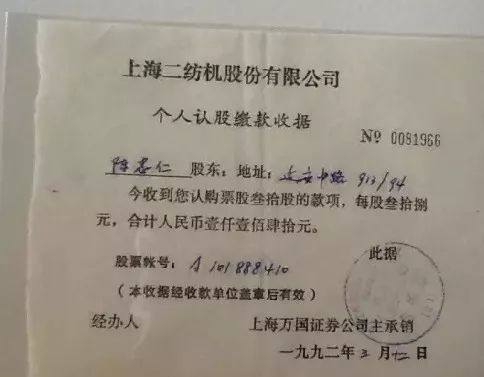 上海二纺机股份有限公司
个人认股缴款收据
№ 0081966
陈忠仁 股东：地址：延安中路 913/94
今收到您认购票股叁拾股的款项，每股叁拾捌
元，合计人民币壹仟壹佰肆拾元。
此据
股票帐号：A 101888410
（本收据经收款单位盖章后有效）
经办人 上海万国证券公司主承销
一九九二年三月十二日